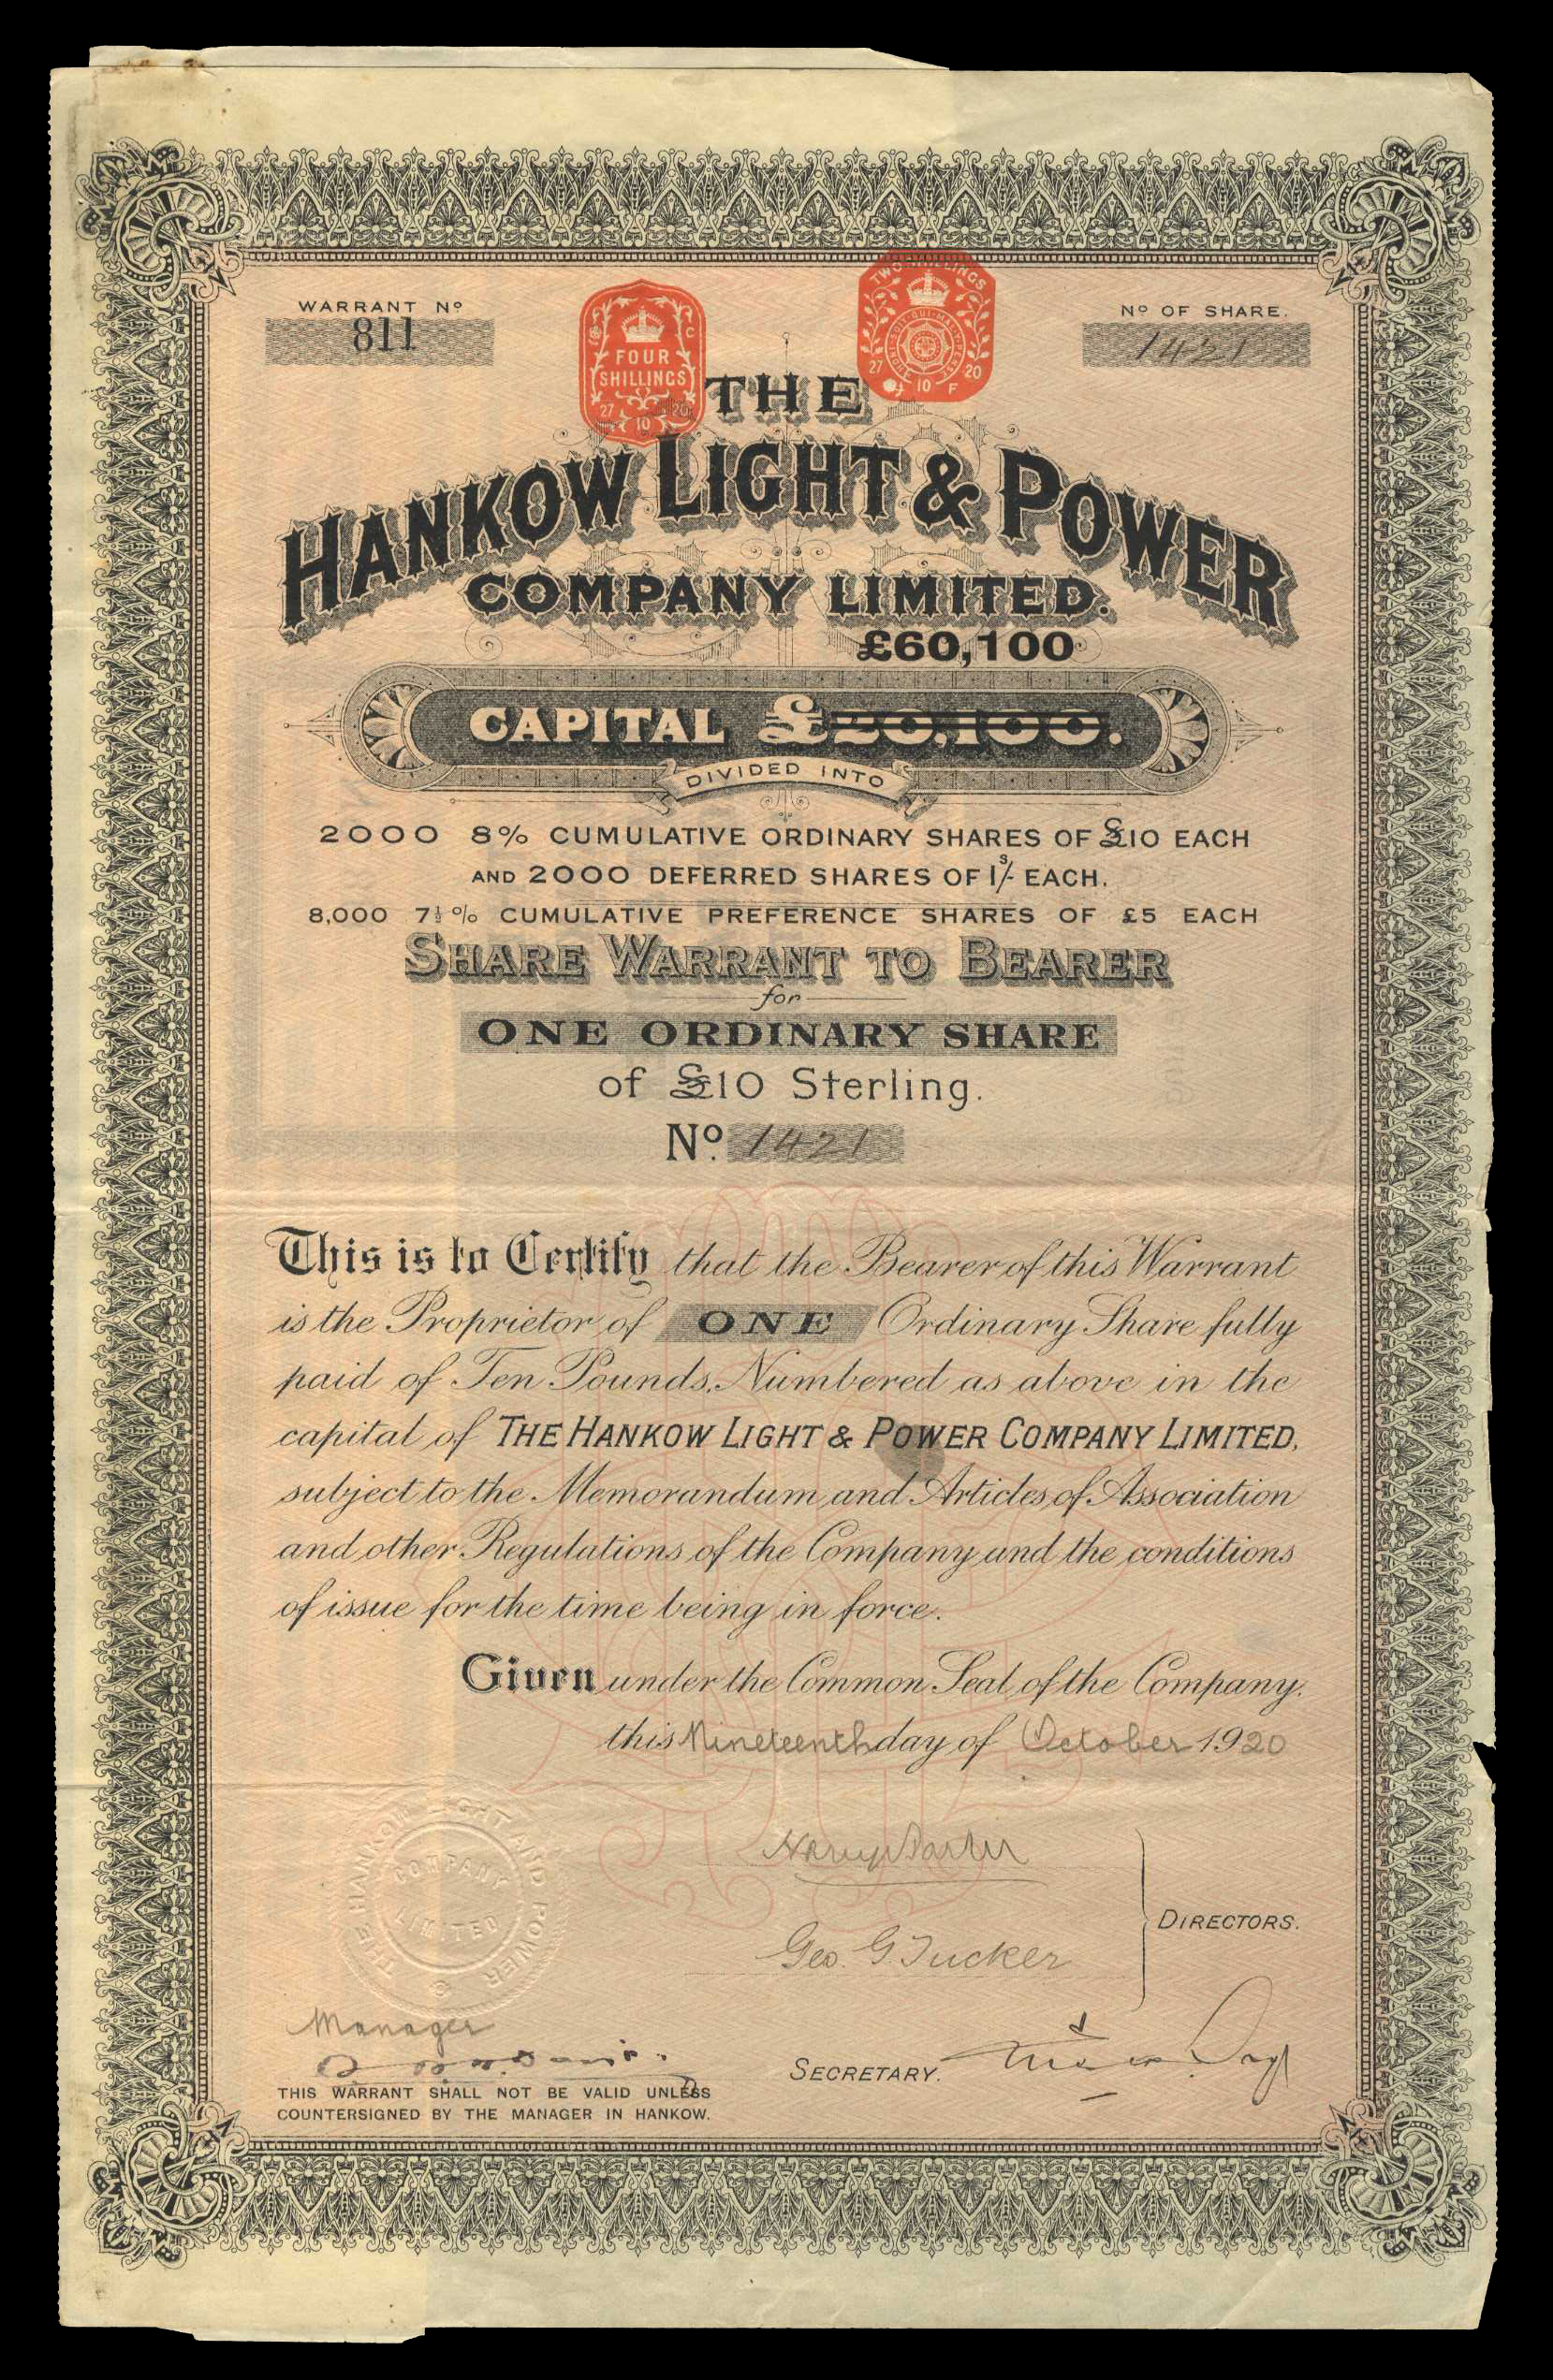 WARRANT Nº
811
FOUR
SHILLINGS
27 10 20
TWO SHILLINGS
HONI·SOIT·QUI·MAL·Y·PENSE
27 10 20
F
Nº OF SHARE.
1421
THE
HANKOW LIGHT & POWER
COMPANY LIMITED.
£60,100
CAPITAL £20,100.
DIVIDED INTO
2000 8% CUMULATIVE ORDINARY SHARES OF £10 EACH
AND 2000 DEFERRED SHARES OF 1s/- EACH.
8,000 7½% CUMULATIVE PREFERENCE SHARES OF £5 EACH
SHARE WARRANT TO BEARER
for
ONE ORDINARY SHARE
of £10 Sterling.
Nº 1421
This is to Certify that the Bearer of this Warrant
is the Proprietor of ONE Ordinary Share fully
paid of Ten Pounds, Numbered as above in the
capital of THE HANKOW LIGHT & POWER COMPANY LIMITED,
subject to the Memorandum and Articles of Association
and other Regulations of the Company and the conditions
of issue for the time being in force.
Given under the Common Seal of the Company.
this Nineteenth day of October 1920
THE HANKOW LIGHT AND POWER
COMPANY
LIMITED
Geo. G Tucker
DIRECTORS.
Manager
SECRETARY.
THIS WARRANT SHALL NOT BE VALID UNLESS
COUNTERSIGNED BY THE MANAGER IN HANKOW.